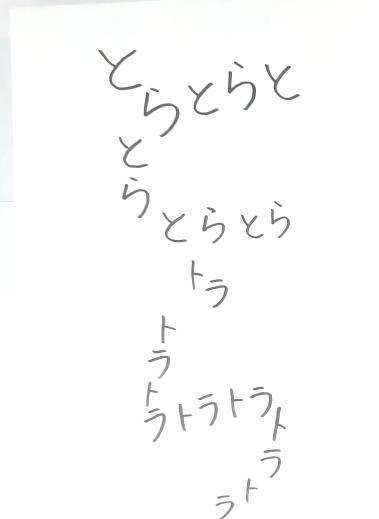 と
らとらと
と
ら
とらとら
トラ
ト
ラ
ト
ラトラトラ
ト
ラ
ラト